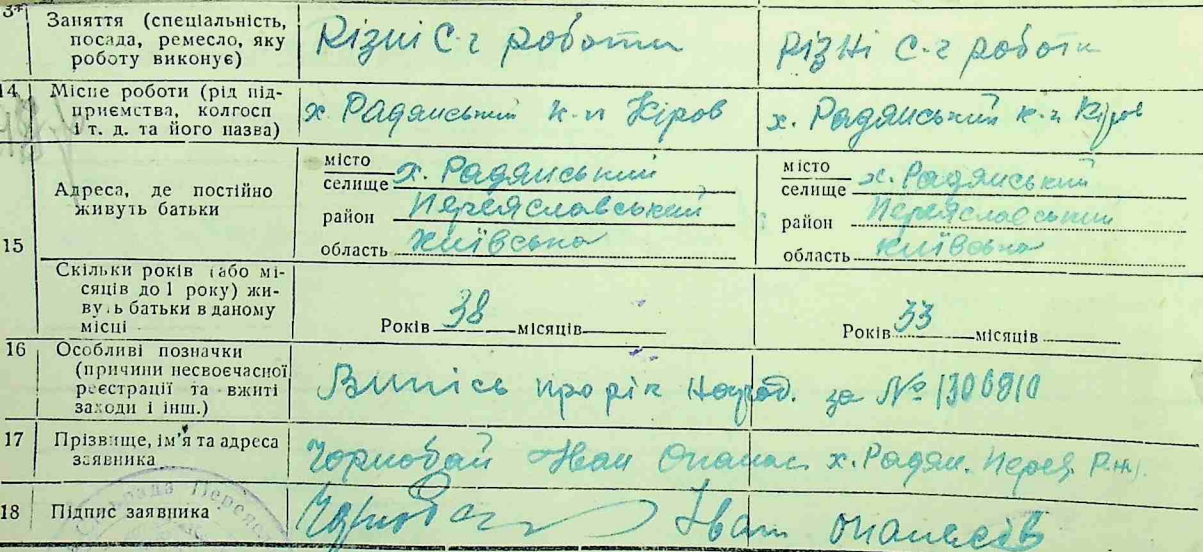 Заняття (спеціальність, посада, ремесло, яку роботу виконує) Різні С-г роботи Різні С-г роботи
14 Місце роботи (рід підприємства, колгосп і т. д. та його назва) х. Радянський к-п Кіров х. Радянський к-п Кіров
15 Адреса, де постійно живуть батьки
місто селище х. Радянський місто селище х. Радянський
район Переяславський район Переяславський
область Київська область Київська
Скільки років (або місяців до 1 року) живуть батьки в даному місці Років 38 місяців Років 33 місяців
16 Особливі позначки (причини несвоєчасної реєстрації та вжиті заходи і інш.) Випись про рік народ. за № 1306910
17 Прізвище, ім'я та адреса заявника Чорнобай Іван Опанас. х. Радян. Перея. р-ну.
18 Підпис заявника Іван